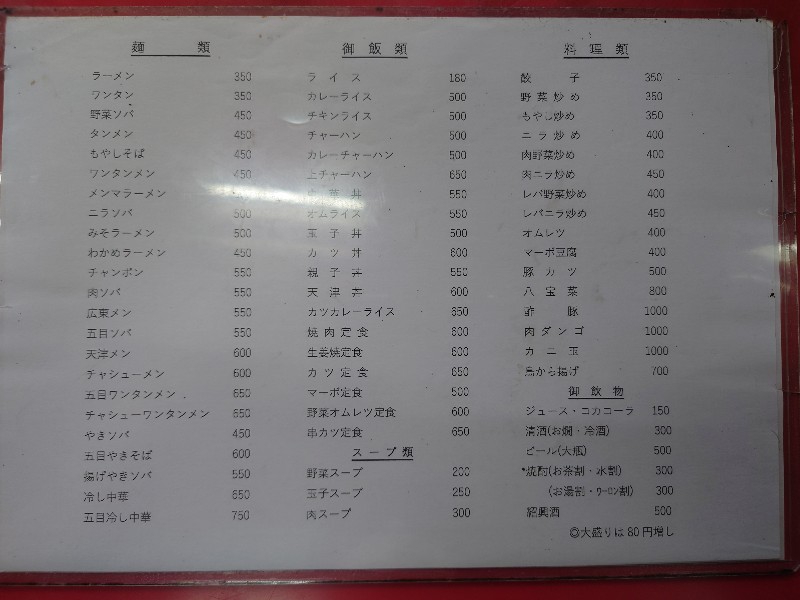 麺 類
ラーメン 350
ワンタン 350
野菜ソバ 450
タンメン 450
もやしそば 450
ワンタンメン 450
メンマラーメン
ニラソバ 500
みそラーメン 500
わかめラーメン 450
チャンポン 550
肉ソバ 550
広東メン 550
五目ソバ 550
天津メン 600
チャシューメン 600
五目ワンタンメン 650
チャシューワンタンメン 650
やきソバ 450
五目やきそば 600
揚げやきソバ 550
冷し中華 650
五目冷し中華 750
御 飯 類
ライス 180
カレーライス 500
チキンライス 500
チャーハン 500
カレーチャーハン 500
上チャーハン 650
中華丼 550
オムライス 550
玉子丼 500
カツ丼 600
親子丼 550
天津丼 600
カツカレーライス 650
焼肉定食 600
生姜焼定食 600
カツ定食 650
マーボ定食 500
野菜オムレツ定食 600
串カツ定食 650
スープ類
野菜スープ 200
玉子スープ 250
肉スープ 300
料 理 類
餃子 350
野菜炒め 350
もやし炒め 350
ニラ炒め 400
肉野菜炒め 400
肉ニラ炒め 450
レバ野菜炒め 400
レバニラ炒め 450
オムレツ 400
マーボ豆腐 400
豚カツ 500
八宝菜 800
酢豚 1000
肉ダンゴ 1000
カニ玉 1000
鳥から揚げ 700
御 飲 物
ジュース・コカコーラ 150
清酒(お燗・冷酒) 300
ビール(大瓶) 500
焼酎(お茶割・水割) 300
(お湯割・ウーロン割) 300
紹興酒 500
◎大盛りは80円増し